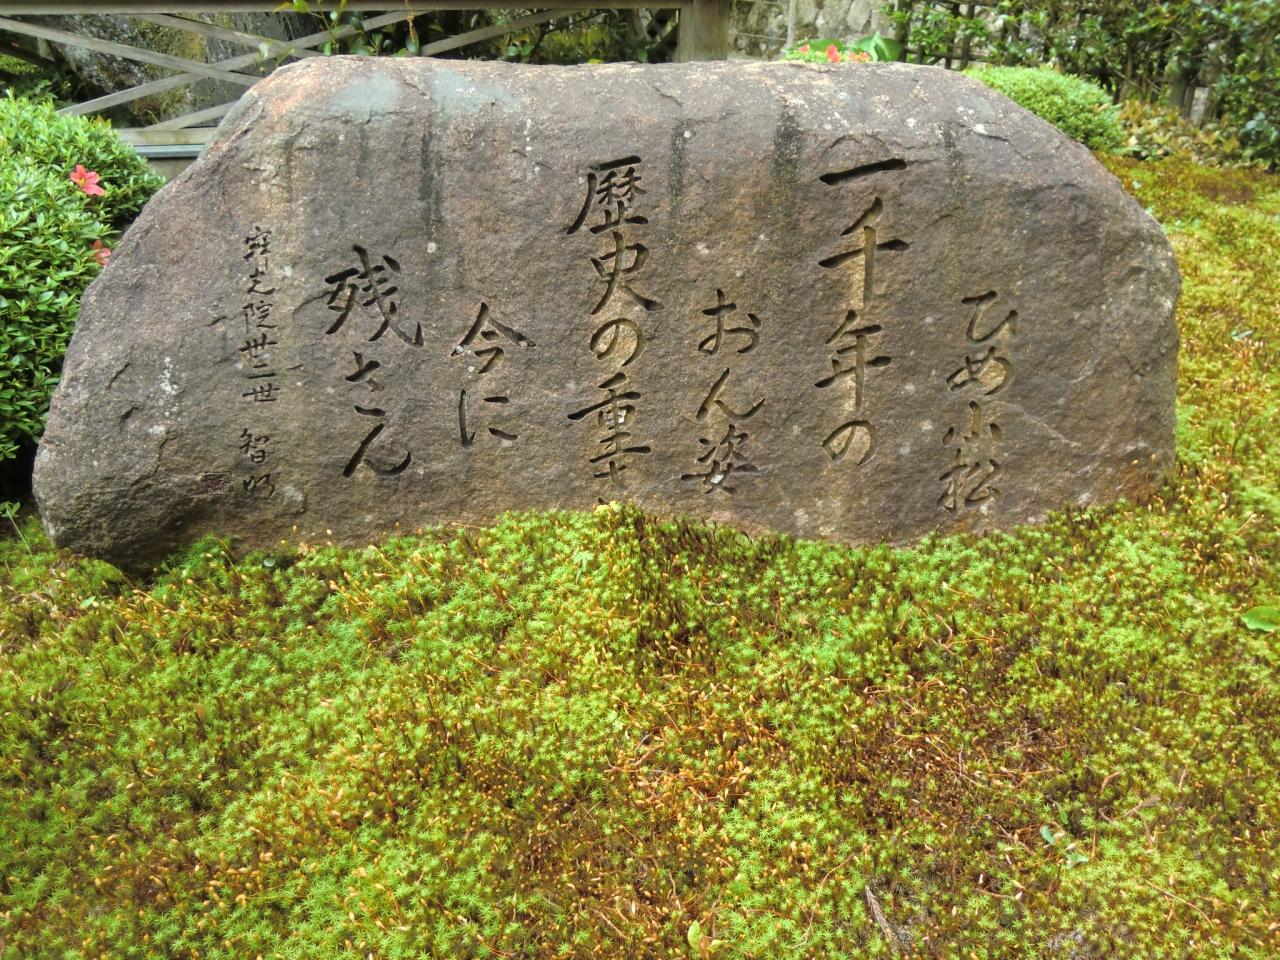 ひめ小松
一千年の
おん姿
歴史の重さ
今に
残さん
寂光院卅三世 智明